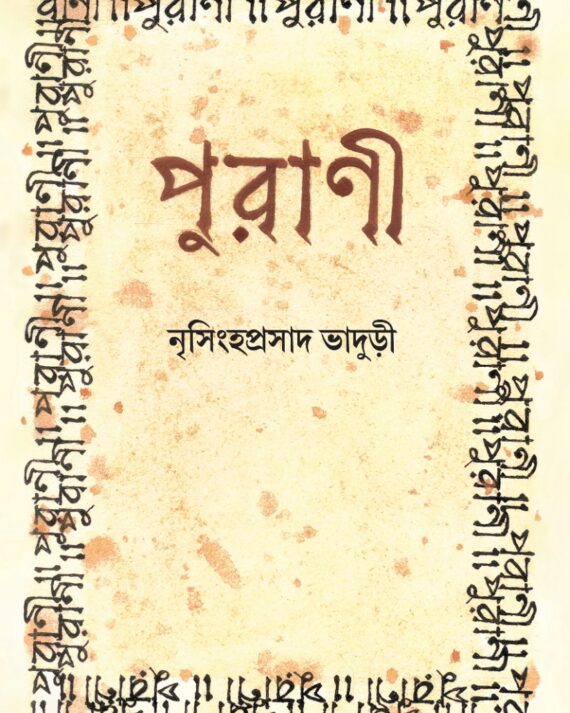 পুরাণী ॥ পুরাণী ॥ পুরাণী
পুরাণী
নৃসিংহপ্রসাদ ভাদুড়ী
পুরাণী ॥ পুরাণী ॥ পুরাণী ॥ পুরাণী ॥ পুরাণী
পুরাণী ॥ পুরাণী ॥ পুরাণী ॥ পুরাণী ॥ পুরাণী
পুরাণী ॥ পুরাণী ॥ পুরাণী ॥ পুরাণী ॥ পুরাণী
পুরাণী ॥ পুরাণী ॥ পুরাণী ॥ পুরাণী
পুরাণী ॥ পুরাণী ॥ পুরাণী